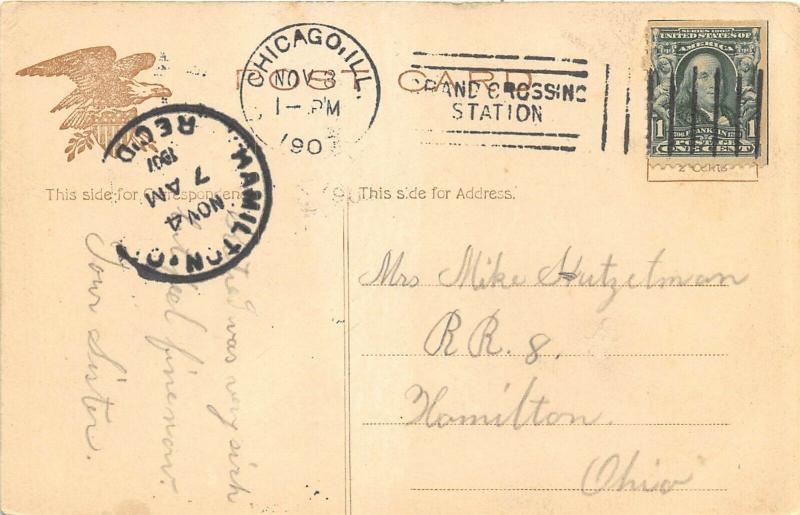 POST CARD
CHICAGO, ILL.
NOV 3
1 – PM
190
GRAND CROSSING
STATION
SERIES 1902
UNITED STATES OF
AMERICA
1 FRANKLIN 1
POSTAGE
ONE CENT
2 Cents
HAMILTON, O.
NOV 4
7 AM
1907
REC'D
This side for Correspondence
This side for Address.
was very sick
feel fine now.
Your Sister.
Mrs Mike Hutzelman
RR. 8.
Hamilton
Ohio